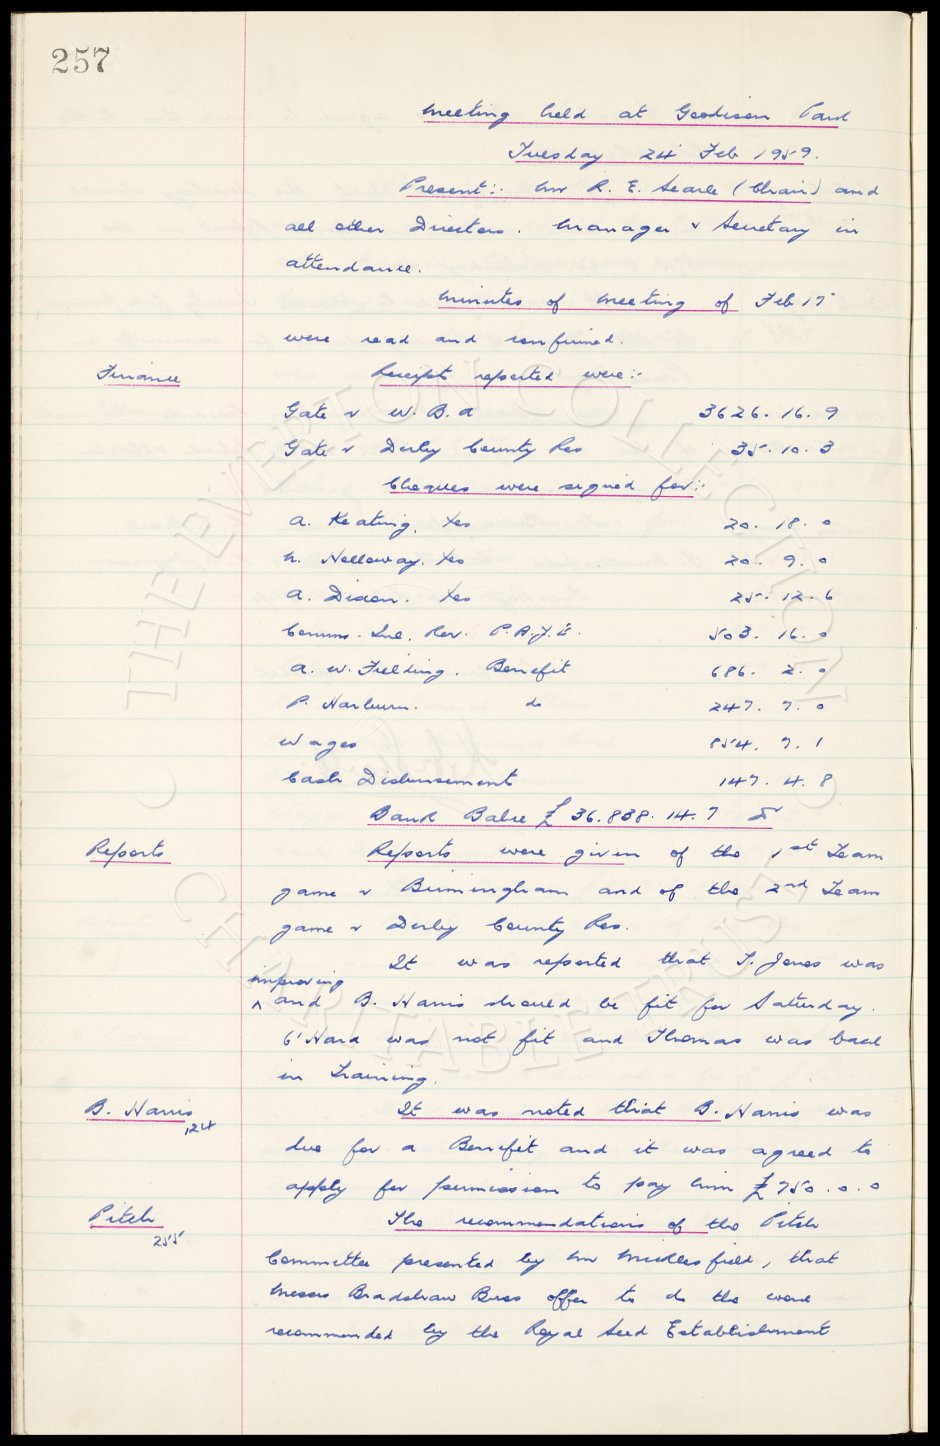 257
Meeting held at Goodison Park
Tuesday 24 Feb 1959.
Present:- Mr R. E. Searle (Chair) and
all other Directors. Manager & Secretary in
attendance.
Minutes of Meeting of Feb 17
were read and confirmed.
Finance
Receipts reported were:-
Gate v W. B. A 3626. 16. 9
Gate v Derby County Res 35. 10. 3
Cheques were signed for:-
A. Keating. Yes 20. 18. 0
H. Holloway. Yes 20. 9. 0
A. Dixon. Yes 25. 12. 6
Comms. Inl. Rev. P.A.Y.E. 503. 16. 0
A. W. Fielding. Benefit 686. 2. 0
P. Harburn. do 247. 7. 0
Wages 854. 7. 1
Cash Disbursement 147. 4. 8
Bank Balce £36.838. 14. 7 Dr
Reports
Reports were given of the 1st Team
game v Birmingham and of the 2nd Team
game v Derby County Res.
It was reported that T. Jones was
improving
^ and B. Harris should be fit for Saturday.
O'Hara was not fit and Thomas was back
in Training.
B. Harris
124
It was noted that B. Harris was
due for a Benefit and it was agreed to
apply for permission to pay him £750. 0. 0
Pitch
255
The recommendations of the Pitch
Committee presented by Mr Micklesfield, that
Messrs Bradshaw Bros offer to do the work
recommended by the Royal Seed Establishment
THE EVERTON COLLECTION
CHARITABLE TRUST